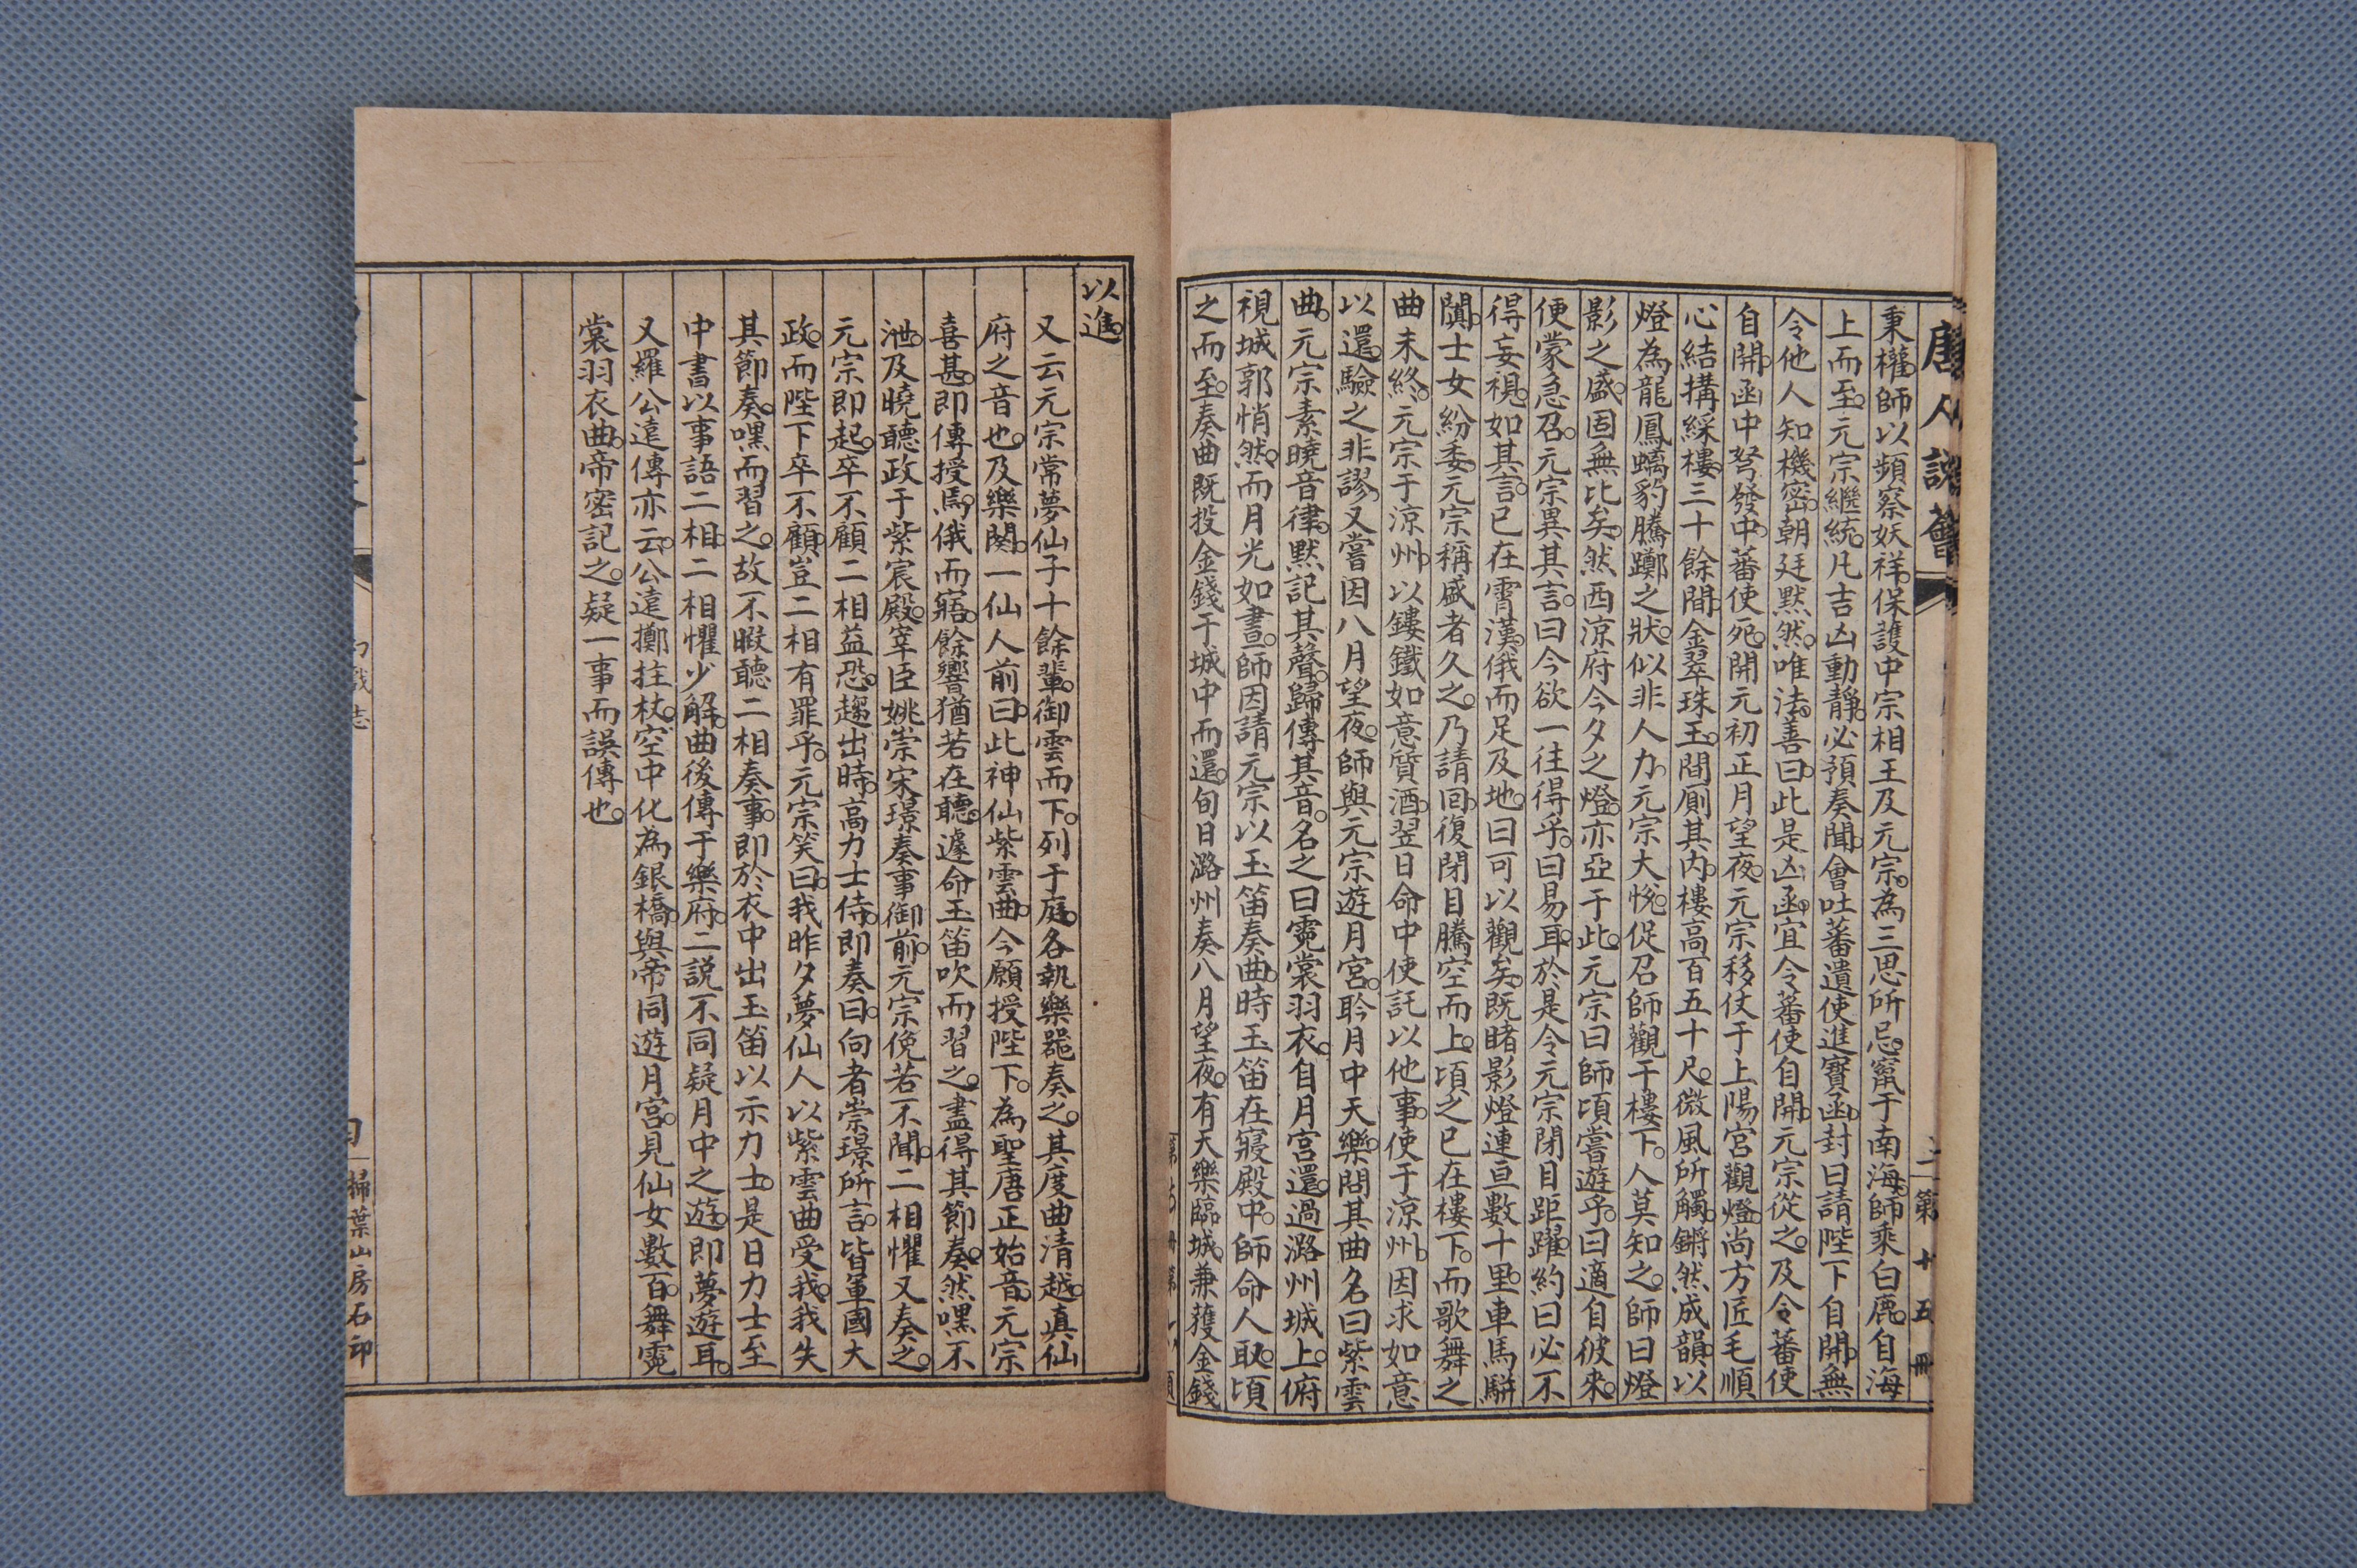 唐人說薈
第十五冊
秉權。師以頻察妖祥。保護中宗相王及元宗。為三思所忌。竄于南海。師乘白鹿。自海
上而至。元宗繼統。凡吉凶動靜。必預奏聞。會吐蕃遣使進寶函。封曰請陛下自開。無
令他人知機密。朝廷默然。唯法善曰。此是凶函。宜令蕃使自開。元宗從之。及令蕃使
自開。函中弩發。中蕃使死。開元初正月望夜。元宗移仗于上陽宮觀燈。尚方匠毛順
心結搆綵樓。三十餘間。金翠珠玉。間厠其內。樓高百五十尺。微風所觸。鏘然成韻。以
燈為龍鳳螭豹騰躑之狀。似非人力。元宗大悅。促召師觀于樓下。人莫知之。師曰燈
影之盛。固無比矣。然西涼府今夕之燈。亦亞于此。元宗曰師頃嘗遊乎。曰適自彼來。
便蒙急召。元宗異其言。曰今欲一往得乎。曰易耳。於是令元宗閉目距躍。約曰必不
得妄視。如其言。已在霄漢。俄而足及地。曰可以觀矣。既睹影燈連亘數十里。車馬駢
闐。士女紛委。元宗稱盛者久之。乃請回。復閉目騰空而上。頃之已在樓下。而歌舞之
曲未終。元宗于涼州。以鏤鐵如意質酒。翌日命中使託以他事。使于涼州。因求如意
以還。驗之非謬。又嘗因八月望夜。師與元宗遊月宮。聆月中天樂。問其曲名。曰紫雲
曲。元宗素曉音律。默記其聲。歸傳其音。名之曰霓裳羽衣。自月宮還。過潞州城上。俯
視城郭悄然。而月光如晝。師因請元宗以玉笛奏曲。時玉笛在寢殿中。師命人取。頃
之而至。奏曲既投金錢于城中而還。旬日潞州奏八月望夜。有天樂臨城。兼獲金錢
以進。
又云元宗常夢仙子十餘輩。御雲而下。列于庭。各執樂器奏之。其度曲清越。真仙
府之音也。及樂闋。一仙人前曰。此神仙紫雲曲。今願授陛下。為聖唐正始音。元宗
喜甚。即傳授焉。俄而寤。餘響猶若在聽。遽命玉笛吹而習之。盡得其節奏。然嘿不
泄。及曉聽政于紫宸殿。宰臣姚崇宋璟奏事御前。元宗俛若不聞。二相懼又奏之。
元宗即起。卒不顧二相益恐。趨出時。高力士侍。即奏曰。向者崇璟所言。皆軍國大
政。而陛下卒不顧。豈二相有罪乎。元宗笑曰。我昨夕夢仙人以紫雲曲受我。我失
其節奏。嘿而習之。故不暇聽二相奏事。即於衣中出玉笛以示力士。是日力士至
中書以事語二相。二相懼少解。曲後傳于樂府。二說不同疑月中之遊。即夢遊耳。
又羅公遠傳亦云。公遠擲拄杖。空中化為銀橋。與帝同遊月宮。見仙女數百。舞霓
裳羽衣曲。帝密記之。疑一事而誤傳也。
幻戲志
掃葉山房石印